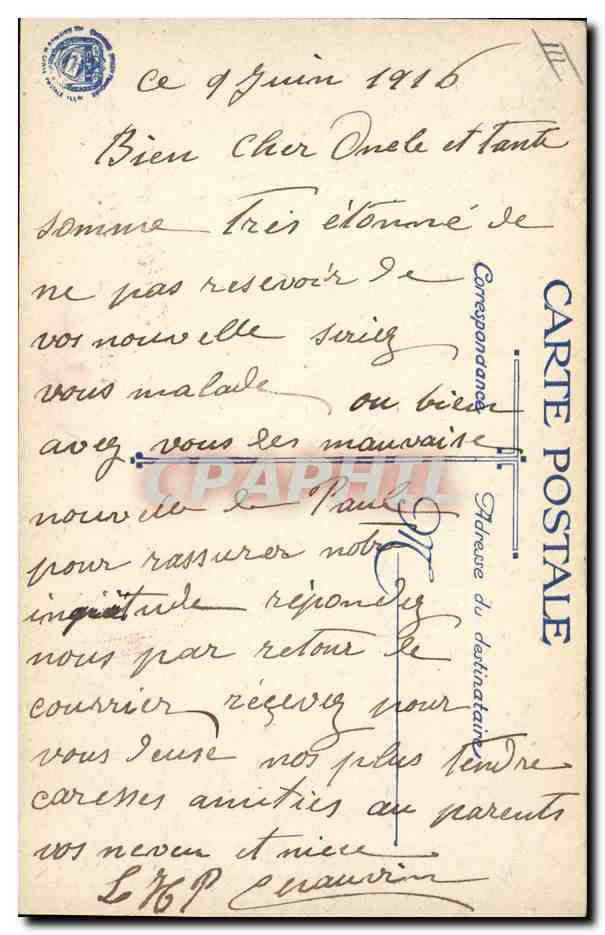 III
ce 9 Juin 1916
Bien Cher Oncle et tante
somme Très étonné de
ne pas resevoir de
vos nouvelle seriez
vous malade ou bien
avez vous des mauvaise
nouvelle de Paul
pour rassurer notre
inquiétude répondez
nous par retour de
courrier réçevez pour
vous deuse nos plus tendre
caresses amitiés au parents
vos neveu et niece
L H P Chauvin
CARTE POSTALE
Correspondance
Adresse du destinataire
M
CPAPHIL